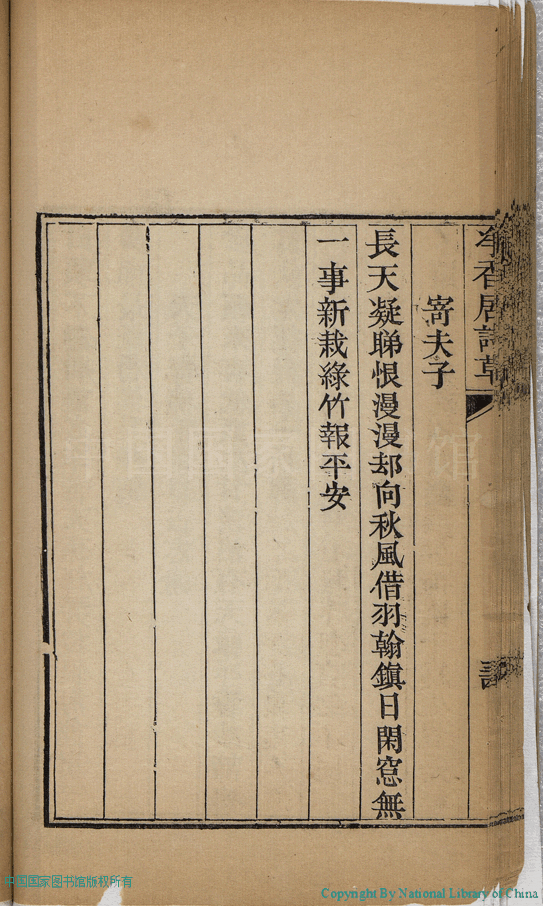 香居詩草
寄夫子
長天凝睇恨漫漫却向秋風借羽翰鎮日閑窓無
一事新栽綠竹報平安
中国国家图书馆
中国国家图书馆版权所有
Copyright By National Library of China